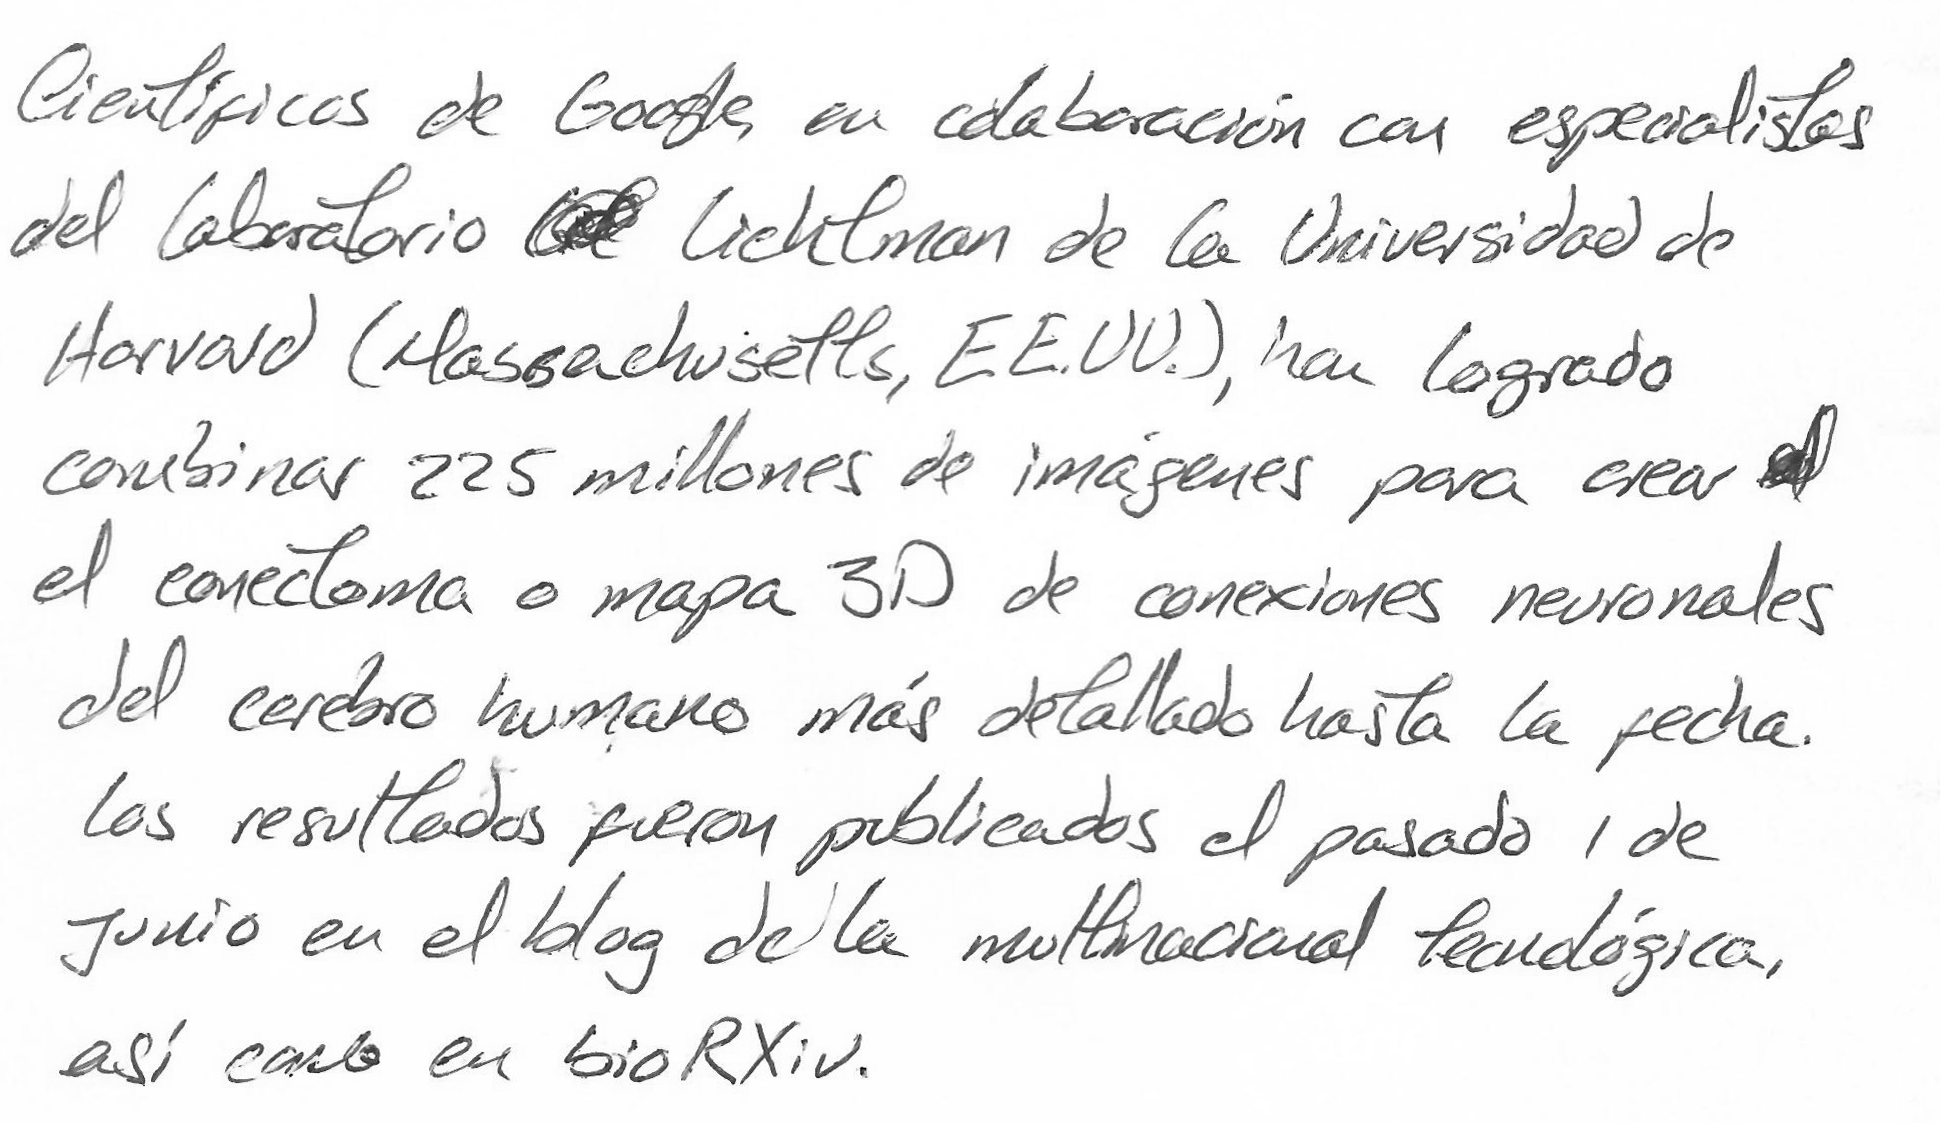 Científicos de Google, en colaboración con especialistas
del laboratorio Lichtman de la Universidad de
Harvard (Massachusetts, E.E.UU.), han logrado
combinar 225 millones de imágenes para crear
el conectoma o mapa 3D de conexiones neuronales
del cerebro humano más detallado hasta la fecha.
Los resultados fueron publicados el pasado 1 de
junio en el blog de la multinacional tecnológica,
así como en bioRXiv.